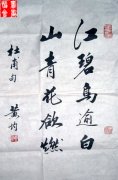 江碧鸟逾白
山青花欲燃
杜甫句